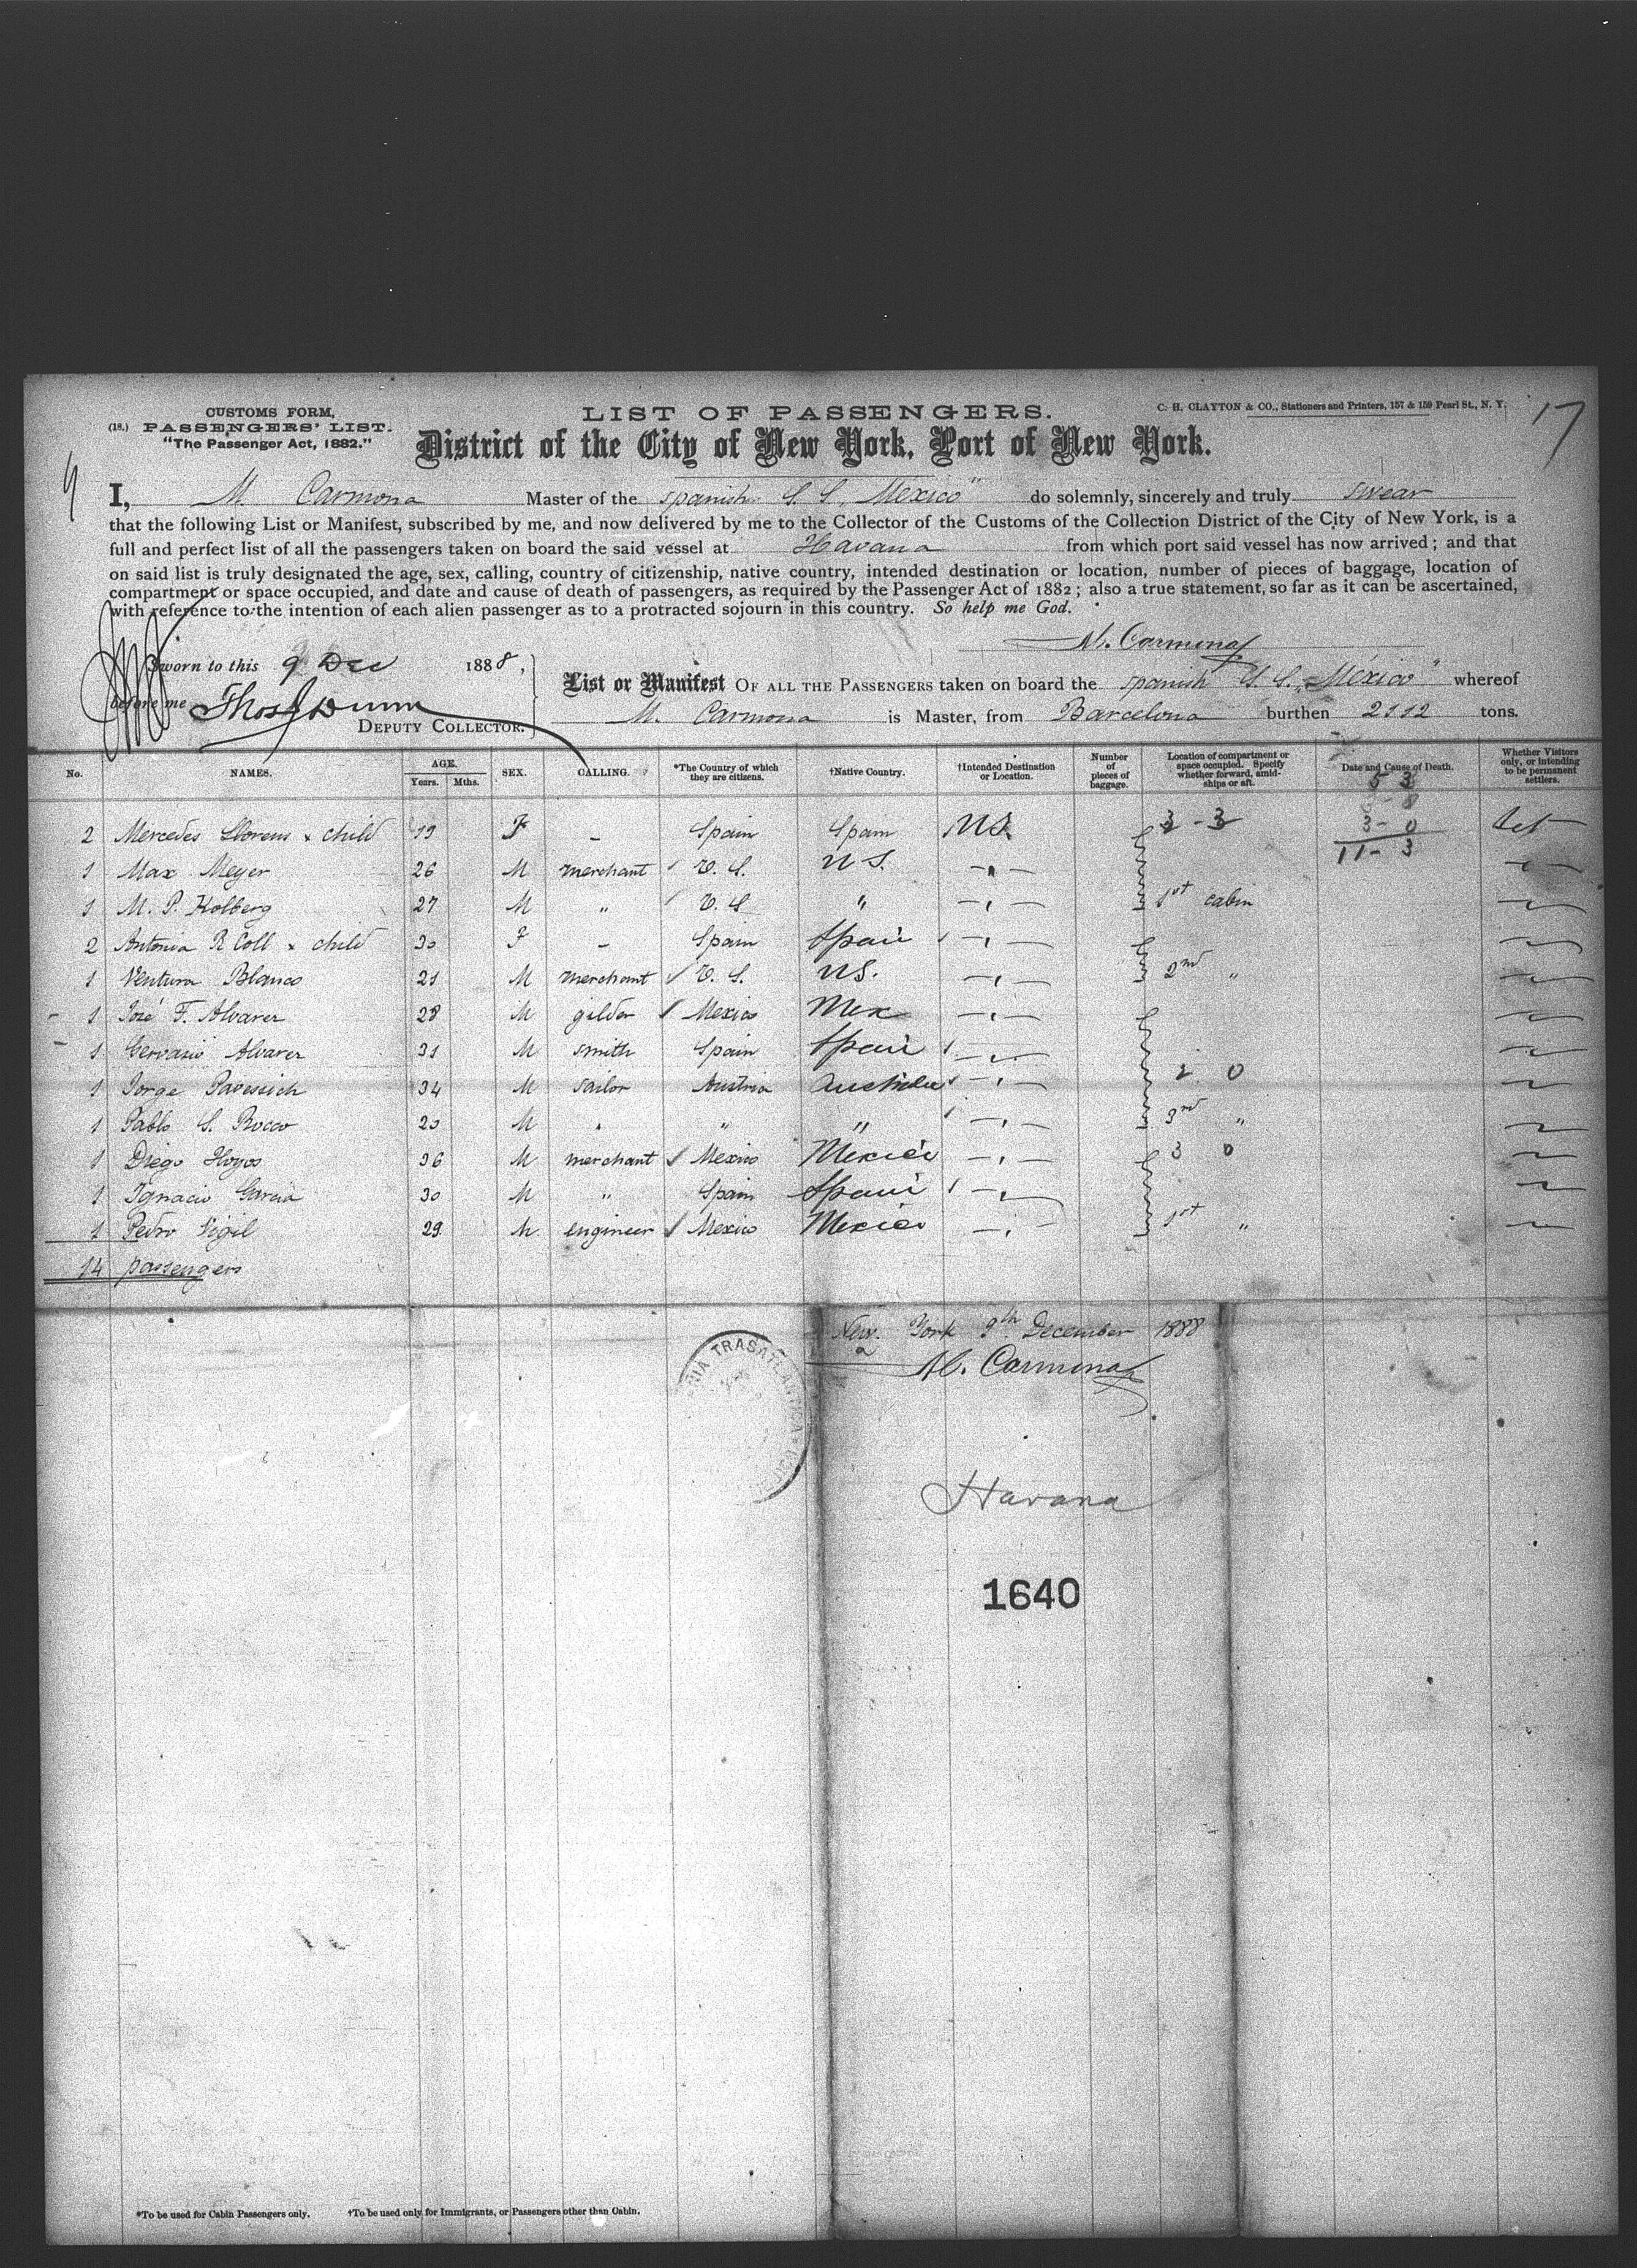 CUSTOMS FORM,
(18.) PASSENGERS' LIST.
"The Passenger Act, 1882."
LIST OF PASSENGERS.
C. H. CLAYTON & CO., Stationers and Printers, 157 & 159 Pearl St., N. Y.
17
District of the City of New York, Port of New York.
9
I, M. Carmona Master of the spanish S. S. "Mexico" do solemnly, sincerely and truly swear
that the following List or Manifest, subscribed by me, and now delivered by me to the Collector of the Customs of the Collection District of the City of New York, is a
full and perfect list of all the passengers taken on board the said vessel at Havana from which port said vessel has now arrived; and that
on said list is truly designated the age, sex, calling, country of citizenship, native country, intended destination or location, number of pieces of baggage, location of
compartment or space occupied, and date and cause of death of passengers, as required by the Passenger Act of 1882; also a true statement, so far as it can be ascertained,
with reference to the intention of each alien passenger as to a protracted sojourn in this country. So help me God.
M. Carmona
Sworn to this 9 Dec 1888,
before me Thos J Dunn
DEPUTY COLLECTOR.
List or Manifest OF ALL THE PASSENGERS taken on board the spanish S. S. "México" whereof
M. Carmona is Master, from Barcelona burthen 2112 tons.
No. NAMES. AGE. Years. Mths. SEX. CALLING. *The Country of which they are citizens. †Native Country. †Intended Destination or Location. Number of pieces of baggage. Location of compartment or space occupied. Specify whether forward, amidships or aft. Date and Cause of Death. Whether Visitors only, or intending to be permanent settlers.
5 3
3 - 0
11 - 3
2 Mercedes Llorens & child 19 F - Spain Spain U.S. 3 - 3
1 Max Meyer 26 M merchant U. S. U S. - " -
1 M. P. Kolberg 27 M " U. S " - " - 1st cabin
2 Antonia R Coll & child 30 F - Spain Spain - " -
1 Ventura Blanco 21 M merchant U. S. U S. - " - 2nd "
1 José F. Alvarez 28 M gilder Mexico Mex - " -
1 Gervasio Alvarez 31 M smith Spain Spain - " -
1 Jorge Pavessich 34 M sailor Austria Austria - " - 2 0
1 Pablo S. Rocco 20 M " " " - " - 3rd "
1 Diego Hoyos 36 M merchant Mexico Mexico - " - 3 0
1 Ignacio Garcia 30 M " Spain Spain - " -
1 Pedro Vigil 29 M engineer Mexico Mexico - " - 1st "
14 passengers
New York 9th December 1888
M. Carmona
TRASATLANTICA
Havana
1640
*To be used for Cabin Passengers only. †To be used only for Immigrants, or Passengers other than Cabin.